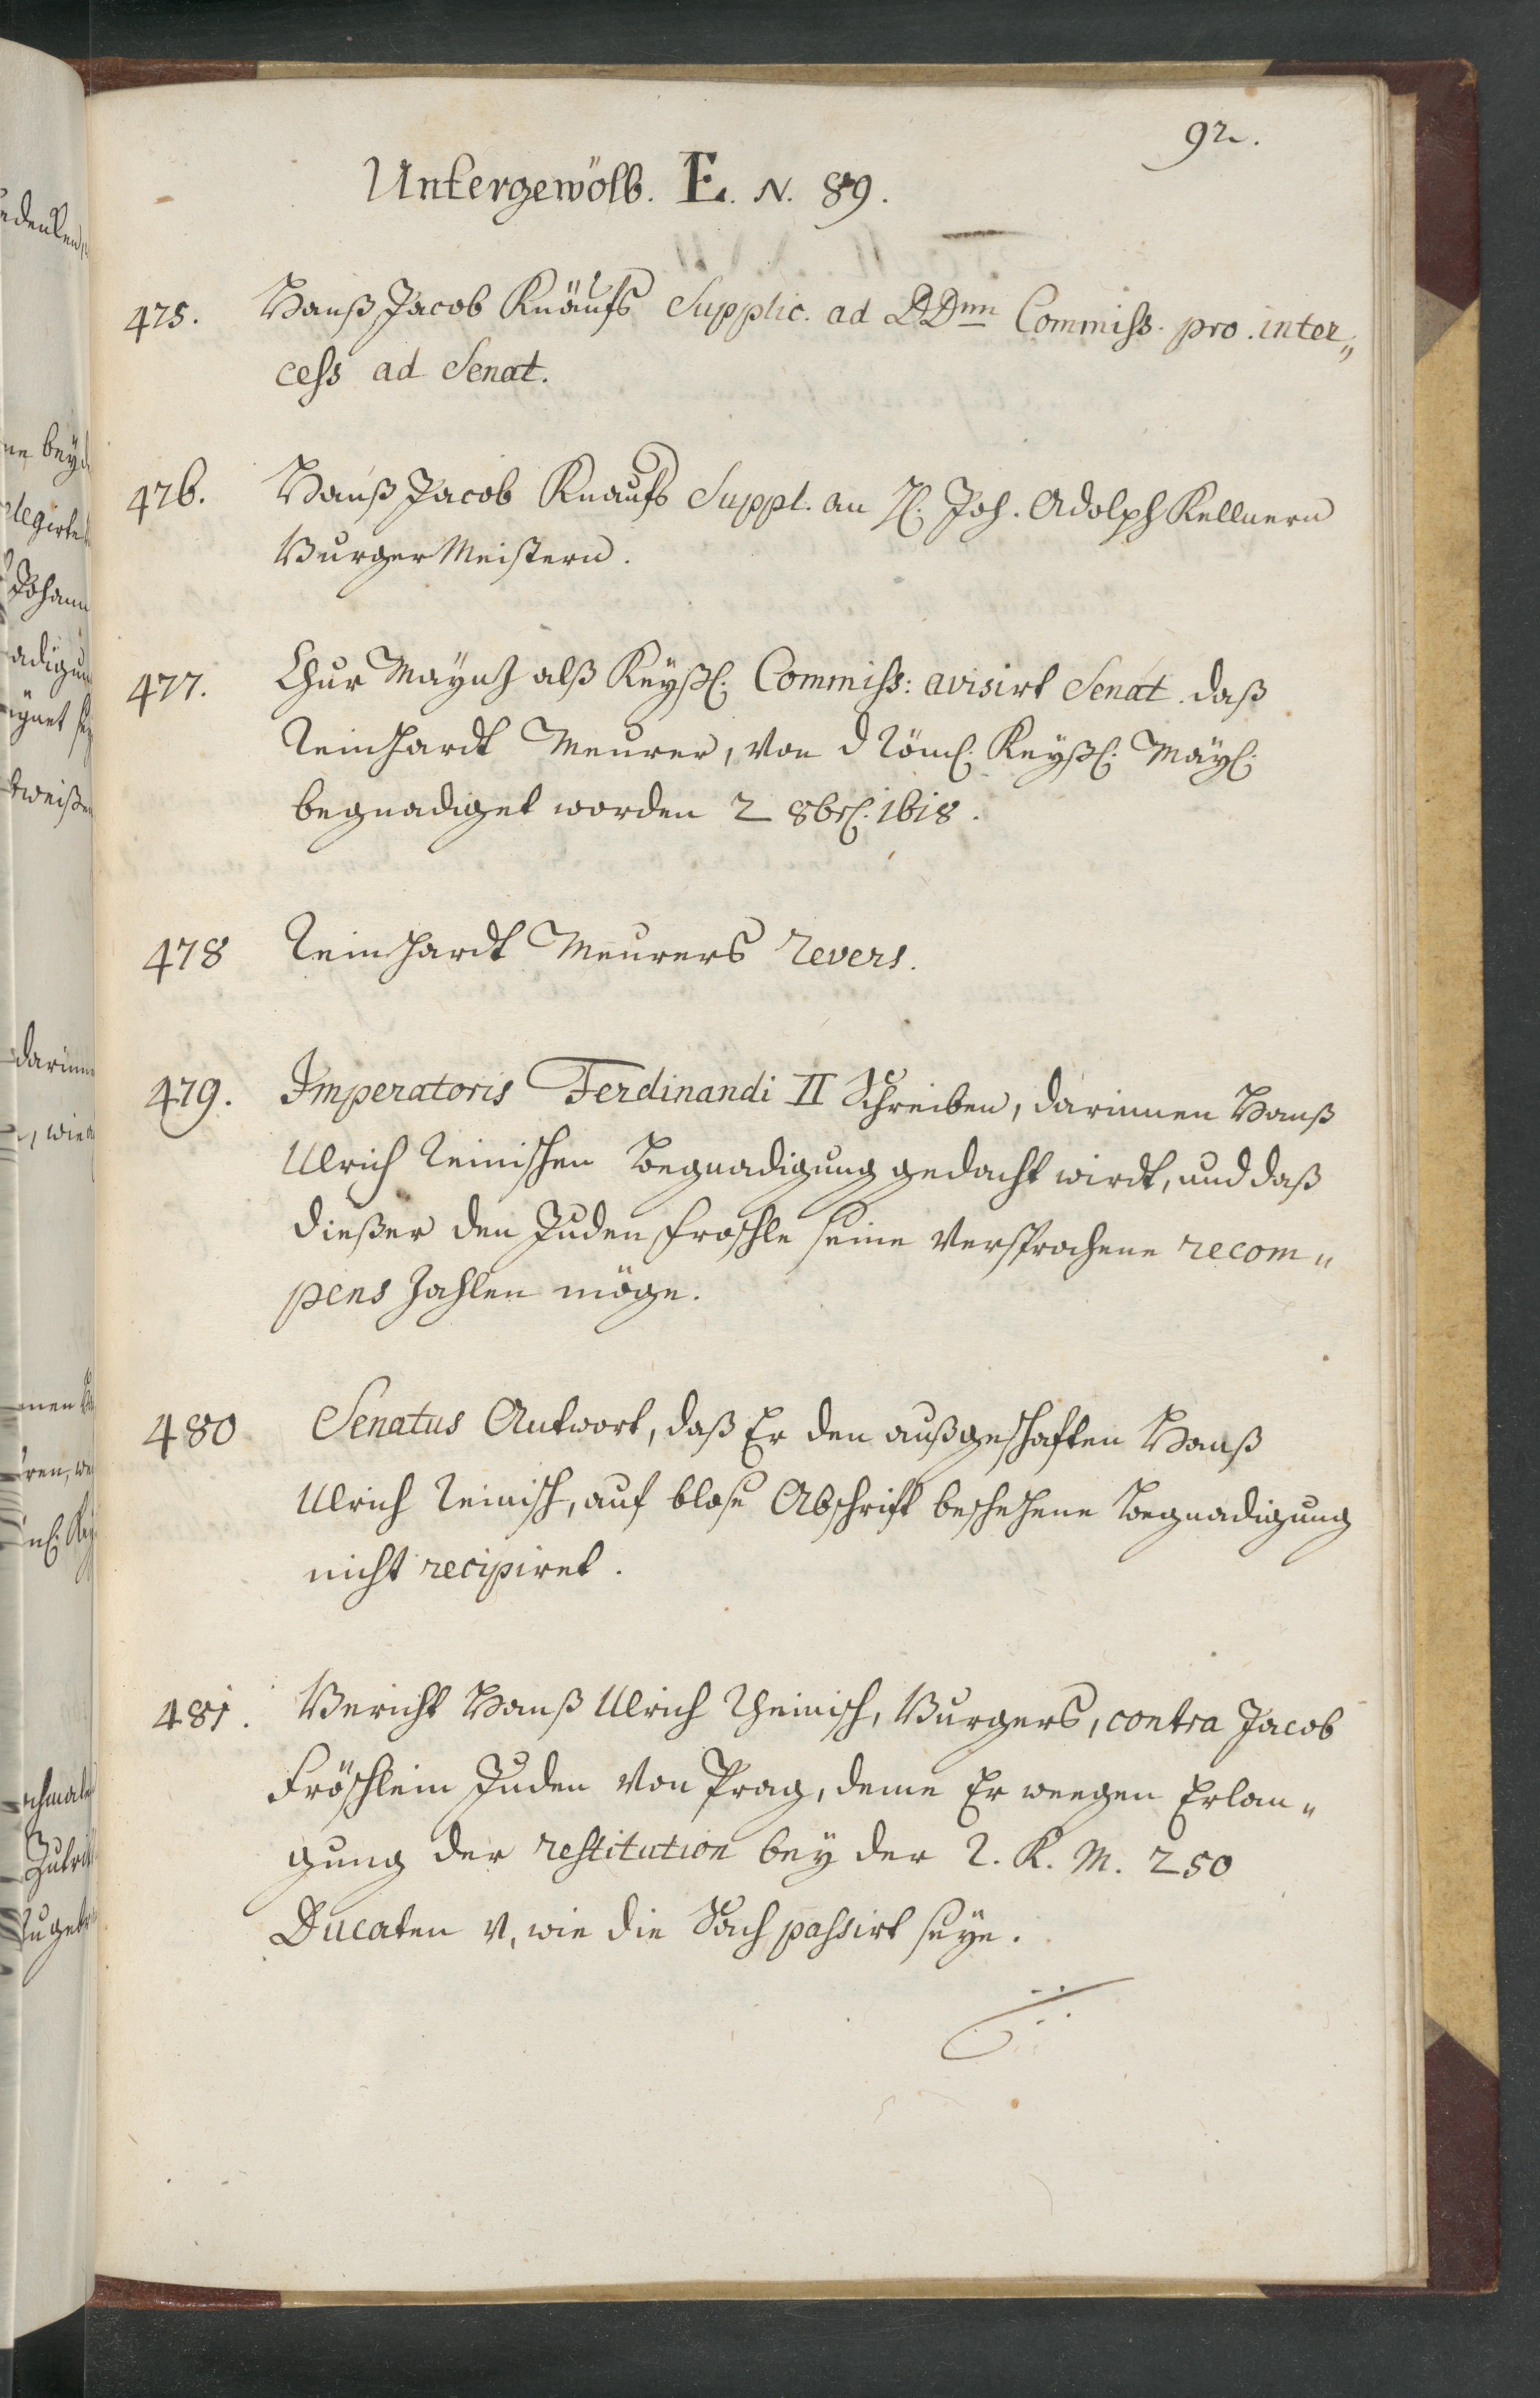 92.
Untergewölb. E. N. 89.
475. Hanß Jacob Knäufs Supplic. ad DDnn Commiss. pro. inter„
cess ad Senat.
476. Hanß Jacob Knaufs Suppl. an H. Joh. Adolph Kellnern
BurgerMeistern.
477. Chur Maynz alß Keyßl. Commiss: avisirt Senat. daß
Reinhardt Meurer, von d Röml. Keyßl. Mayl.
begnadiget worden 2 8brl. 1618.
478 Reinhardt Meurers Revers.
479. Imperatoris Ferdinandi II Schreiben, darinnen Hanß
Ulrich Reinischen Begnadigung gedacht wirdt, und daß
dießer den Juden Froschle seine versprochene recom„
pens zahlen möge.
480 Senatus Antwort, daß Er den außgeschafften Hanß
Ulrich Reinisch, auf blose Abschrifft beschehene Begnadigung
nicht recipiret.
481. Bericht Hanß Ulrich Rheinisch, Burgers, contra Jacob
Fröschlein Juden von Prag, deme Er wegen Erlan„
gung der restitution bey der R. K. M. 250
Ducaten v, wie die Sach passirt seye.